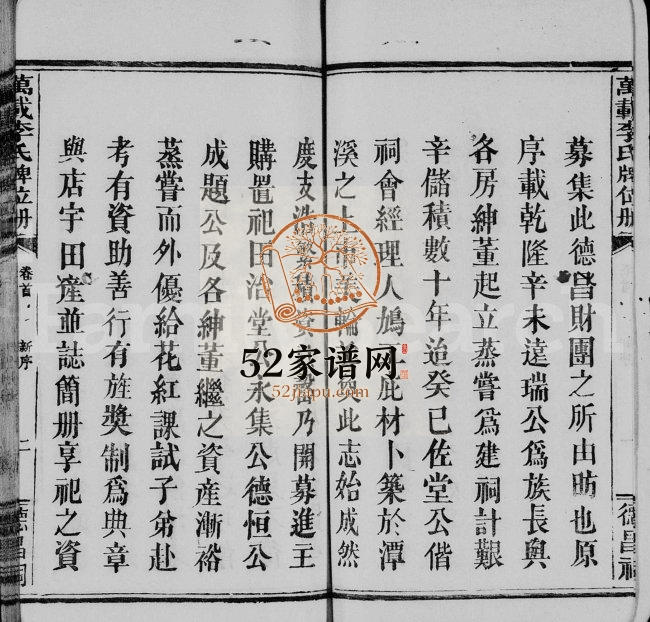 萬載李氏牌位册
德昌祠
募集此德昌財團之所由昉也原
序載乾隆辛未達瑞公爲族長與
各房紳董起立蒸嘗爲建祠計艱
辛儲積數十年迨癸巳佐堂公偕
祠會經理人鳩工庇材卜築於潭
溪之上 美輪 奐此志始成然
度支浩繁積 乃開募進主
購置祀田治堂公永集公德恒公
成題公及各紳董繼之資產漸裕
蒸嘗而外優給花紅課試子弟赴
考有資助善行有旌獎制爲典章
與店宇田產並誌簡册享祀之資
萬載李氏牌位册
卷首
新序
二
德昌祠
52家谱网
52jiapu.com
FamilySearch